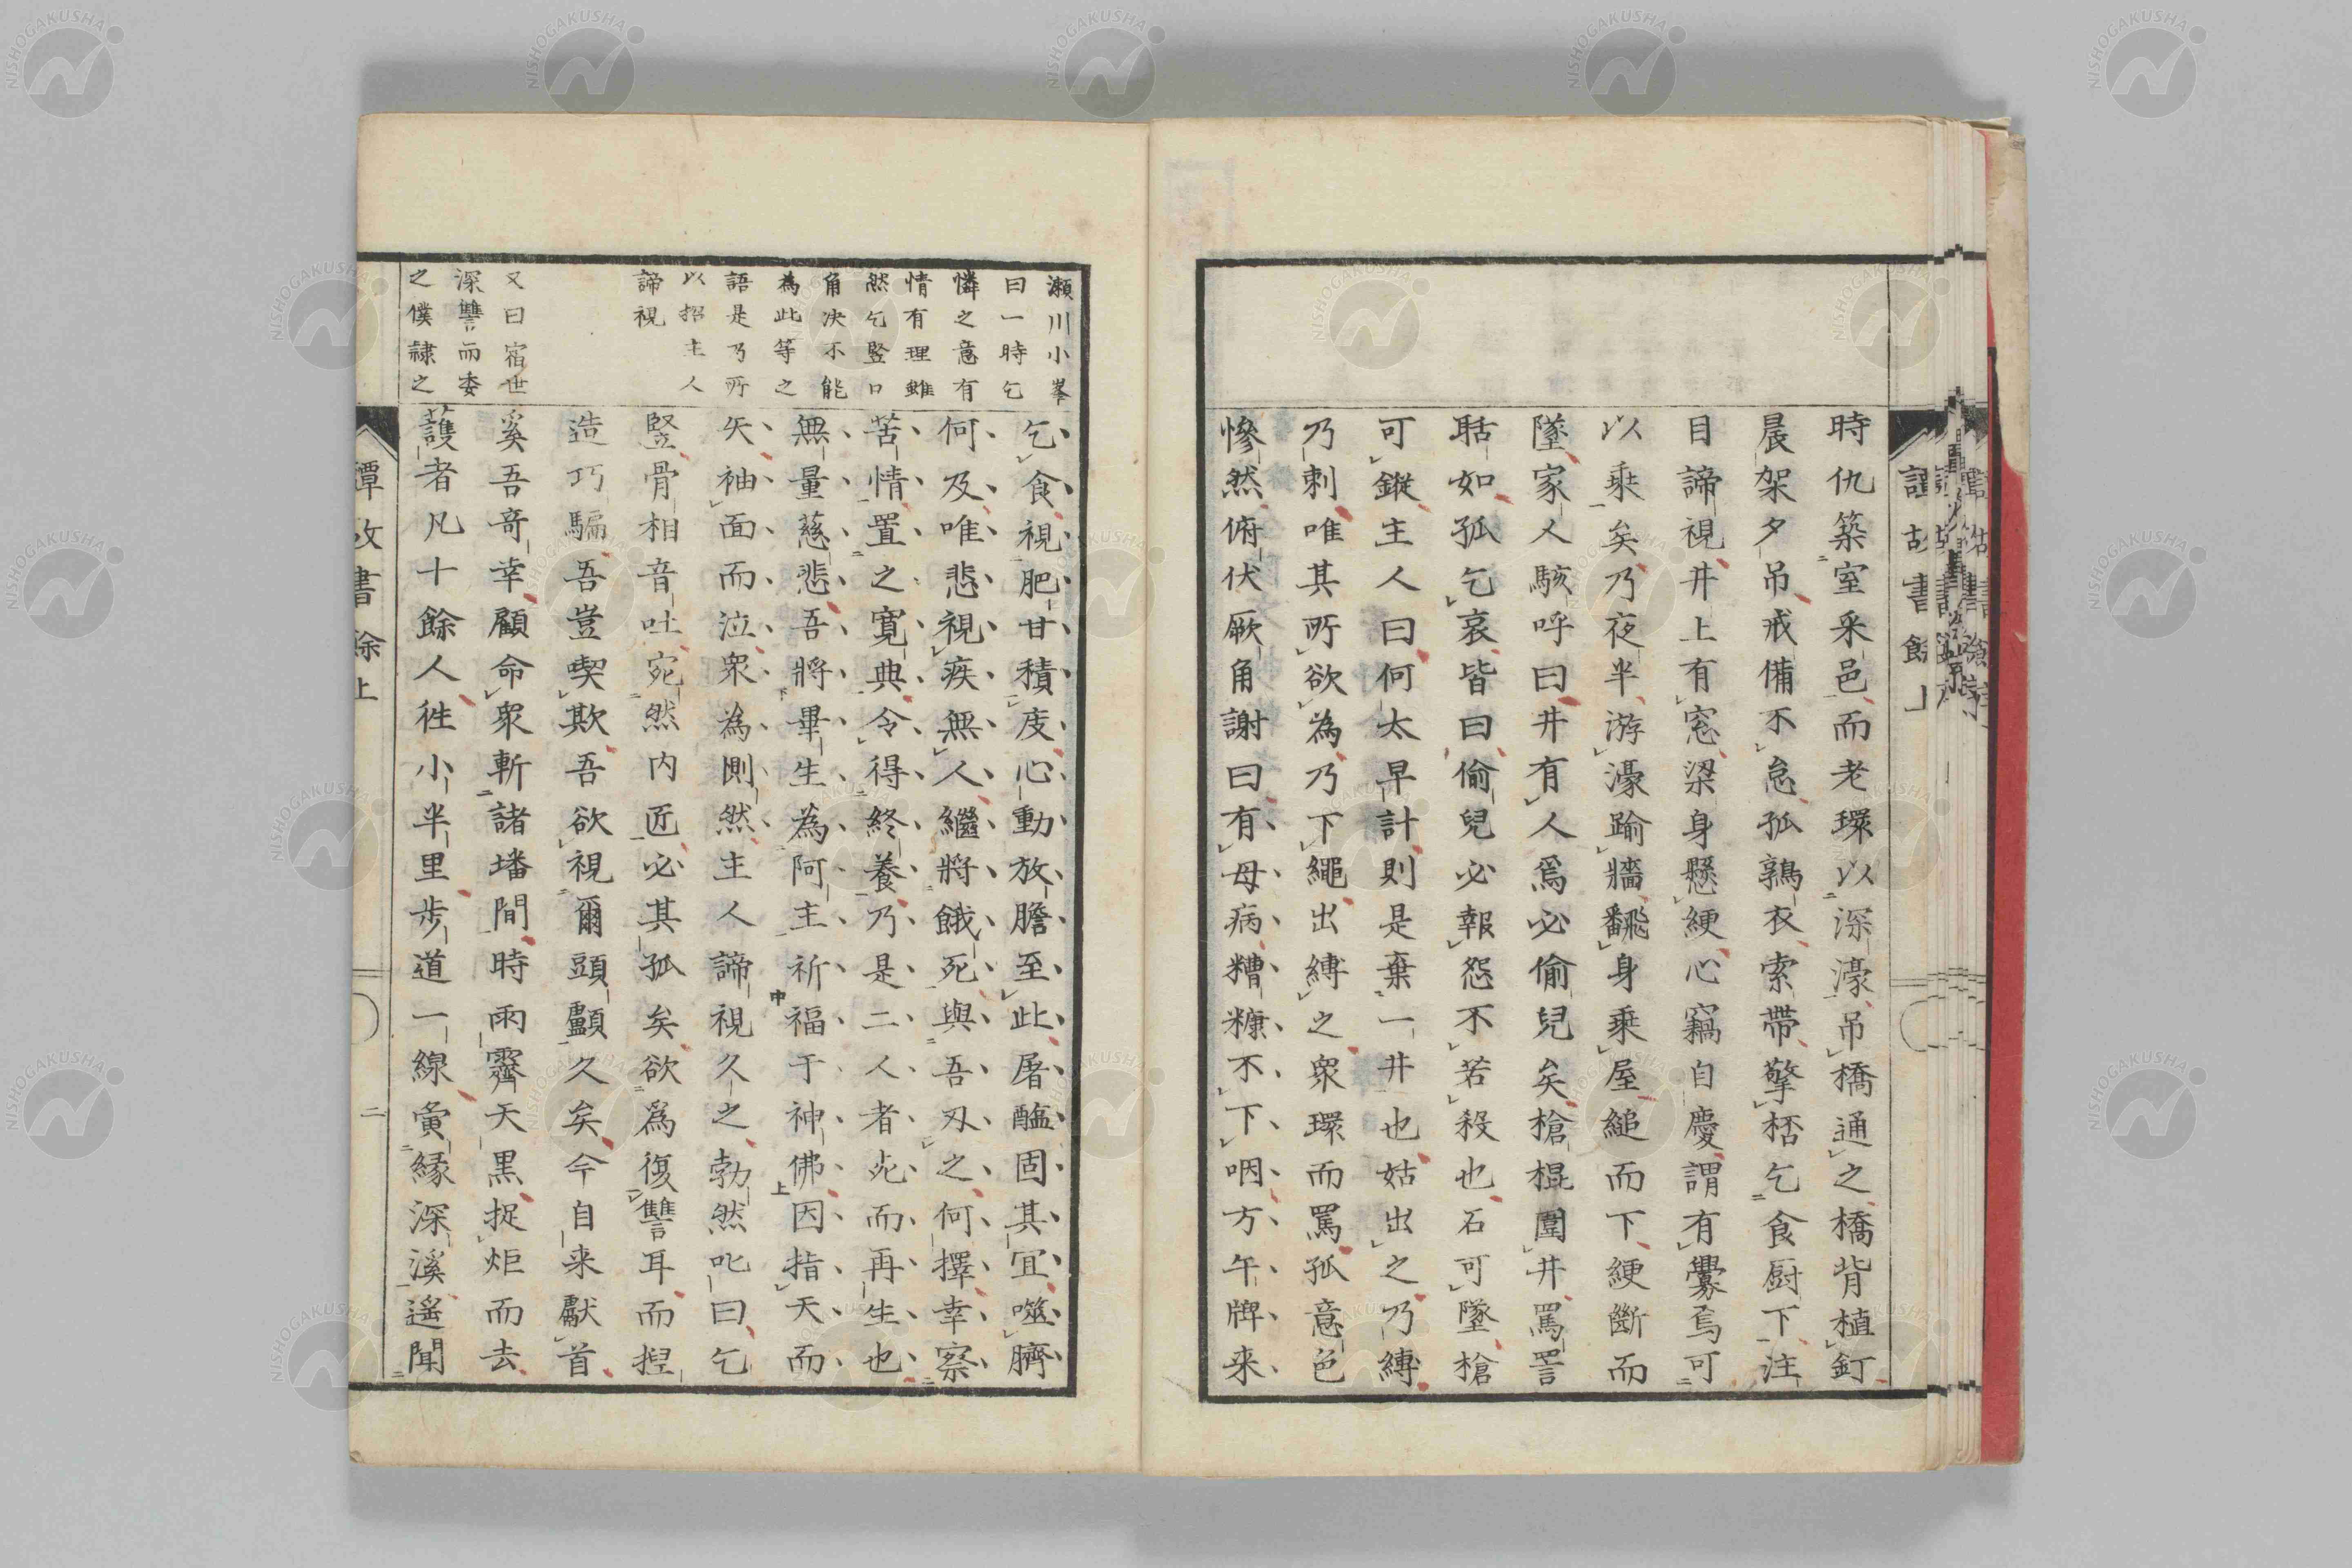 時仇築室采邑而老環以深濠吊橋通之橋背植釘
晨架夕吊戒備不怠孤鶉衣索帶擎桮乞食厨下注
目諦視井上有窓梁身懸綆心竊自慶謂有釁焉可
以乘矣乃夜半游濠踰牆飜身乗屋縋而下綆斷而
墜家人駭呼曰井有人焉必偷兒矣槍棍圍井罵詈
聒如孤乞哀皆曰偷兒必報怨不若殺也石可墜槍
可鏦主人曰何太早計則是棄一井也姑出之乃縛
乃刺唯其所欲為乃下繩出縛之衆環而罵孤意色
慘然俯伏厥角謝曰有母病糟糠不下咽方午牌来
乞食視肥甘積庋心動放膽至此屠醢固其宜噬臍
何及唯悲視疾無人繼將餓死與吾刄之何擇幸察
苦情置之寛典令得終養乃是二人者死而再生也
無量慈悲吾將畢生為阿主祈福于神佛因指天而
矢袖面而泣衆為惻然主人諦視久之勃然叱曰乞
竪骨相音吐宛然内匠必其孤矣欲爲復讐耳而揑
造巧騙吾豈喫欺吾欲視爾頭顱久矣今自来獻首
奚吾奇幸顧命衆斬諸墦間時雨霽天黒捉炬而去
護者凡十餘人徃小半里步道一線夤縁深溪遙聞
瀬川小峯
曰一時乞
憐之意有
情有理雖
然乞竪口
角决不能
為此等之
語是乃所
以招主人
諦視
又曰宿世
深讐而委
之僕隷之
譚故書餘上
二
NISHOGAKUSHA